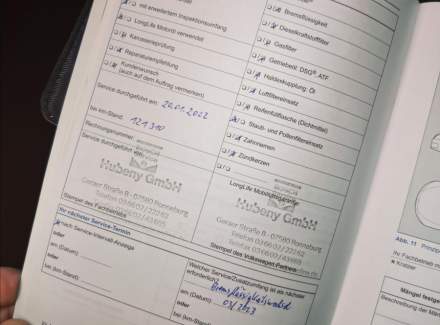 mit erweitertem Inspektionsumfang
LongLife Motoröl verwendet
Karosserieprüfung
Reparaturempfehlung
Kundenwunsch
(auch auf dem Auftrag vermerken)
Service durchgeführt am: 20.01.2022
bei km-Stand: 121310
Rechnungsnummer
Service durchgeführt
Hubeny GmbH
Geraer Straße 8 · 07580 Ronneburg
Telefon 036602 / 22262
Stempel des Fachbetriebs
Bremsflüssigkeit
Dieselkraftstofffilter
Gasfilter
Getriebeöl: DSG®, ATF
Haldexkupplung: Öl
Luftfiltereinsatz
Reifenfüllflasche (Dichtmittel)
Staub- und Pollenfiltereinsatz
Zahnriemen
Zündkerzen
LongLife Mobilitätsgarantie
Hubeny GmbH
Geraer Straße 8 · 07580 Ronneburg
Telefon 036602 / 22262
Stempel des Volkswagen Partners
Ihr nächster Service-Termin
nach Service-Intervall-Anzeige
oder
am (Datum)
oder
bei (km-Stand)
Welches Service/Zusatzumfang ist als nächstes
erforderlich?
Bremsflüssigkeitswechsel
am (Datum) 01/2023
oder
bei (km-Stand)
Abb. 11
Kratzer
Mängel
Beschreibung der